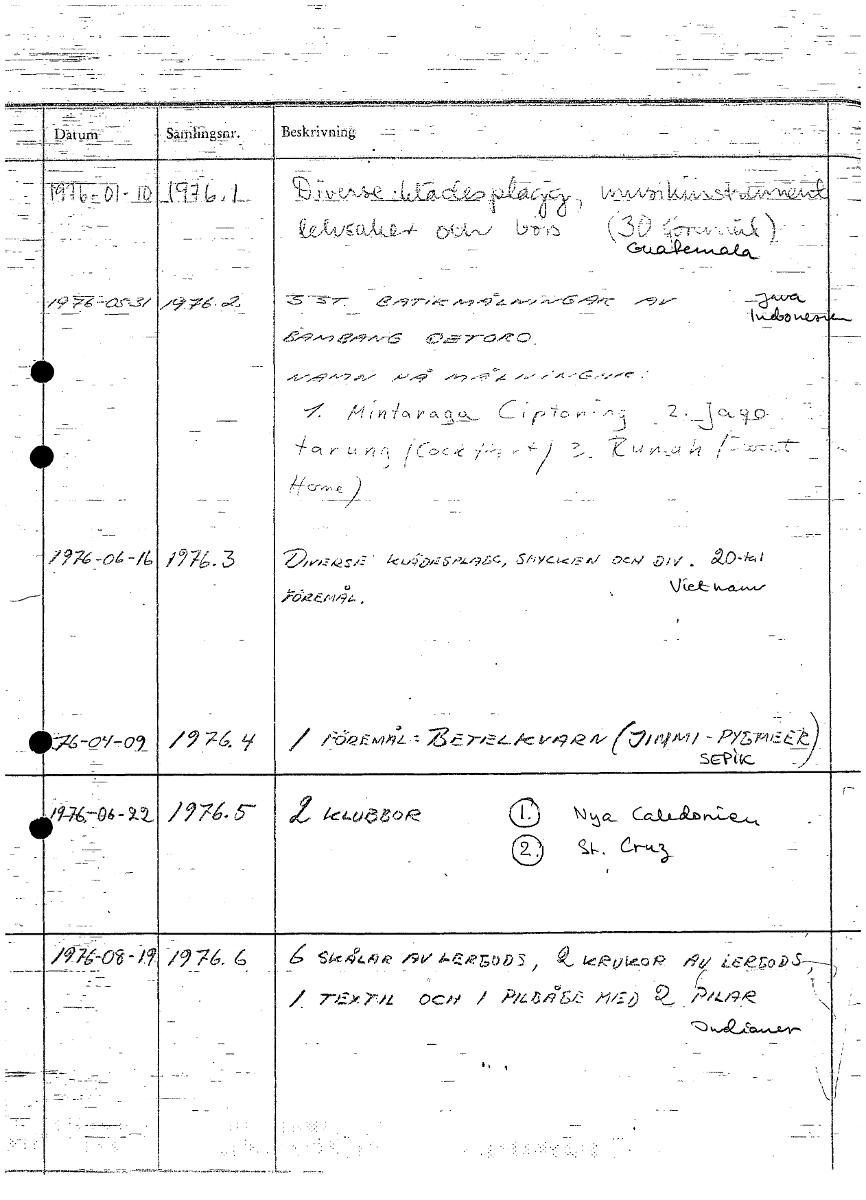 Datum Samlingsnr. Beskrivning
1976-01-10 1976.1 Diverse klädesplagg, musikinstrument
leksaker och (30 föremål)
Guatemala
1976-05-31 1976.2 3 ST. BATIKMÅLNINGAR AV Java
Indonesien
BAMBANG OETORO.
NAMN PÅ MÅLNINGAR:
1. Mintaraga Ciptoning 2. Jago
tarung (Cockfight) 3. Rumah
Home)
1976-06-16 1976.3 DIVERSE KLÄDESPLAGG, SMYCKEN OCH DIV. 20-tal
Vietnam
FÖREMÅL.
76-04-09 1976.4 1 FÖREMÅL = BETELKVARN (JIMMI-PYGMEER)
SEPIK
1976-06-22 1976.5 2 KLUBBOR 1. Nya Caledonien
2. St. Cruz
1976-08-19 1976.6 6 SKÅLAR AV LERGODS, 2 KRUKOR AV LERGODS,
1 TEXTIL OCH 1 PILBÅGE MED 2 PILAR
Indianer